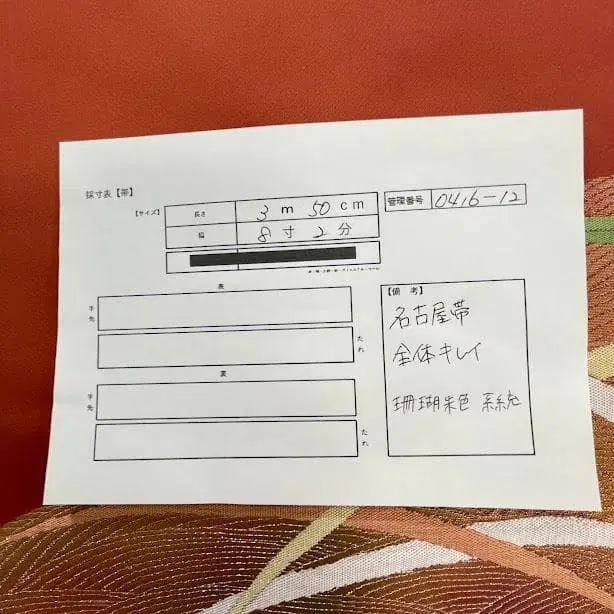 採寸表【帯】
【サイズ】 長さ 3 m 50 cm
管理番号 0416-12
幅 8 寸 2 分
表
手先
たれ
裏
手先
たれ
【備 考】
名古屋帯
全体キレイ
珊瑚朱色 系統